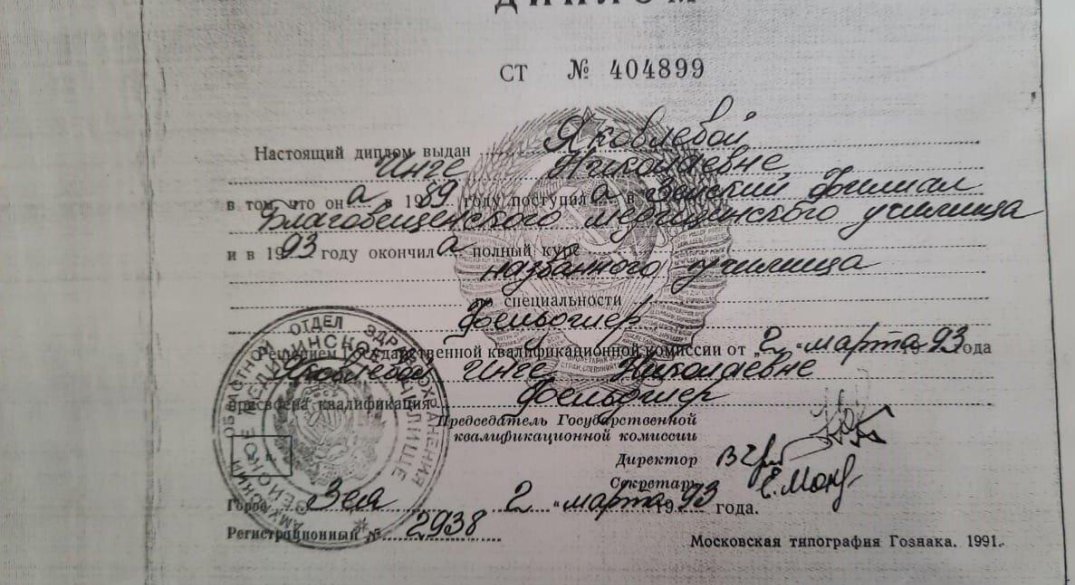 ДИПЛОМ
СТ № 404899
Настоящий диплом выдан Яковлевой
Инге Николаевне
в том, что он а в 1989 году поступил а в Зейский филиал
Благовещенского медицинского училища
и в 1993 году окончил а полный курс
названного училища
по специальности
Фельдшер
Решением Государственной квалификационной комиссии от "2" марта 1993 года
Яковлевой Инге Николаевне
присвоена квалификация Фельдшер
Председатель Государственной
квалификационной комиссии
Директор
Секретарь
Город Зея 2 " марта 1993 года.
Регистрационный № 2938
Московская типография Гознака. 1991.
ОБЛАСТНОЙ ОТДЕЛ ЗДРАВООХРАНЕНИЯ
ЗЕЙСКОЕ МЕДИЦИНСКОЕ УЧИЛИЩЕ